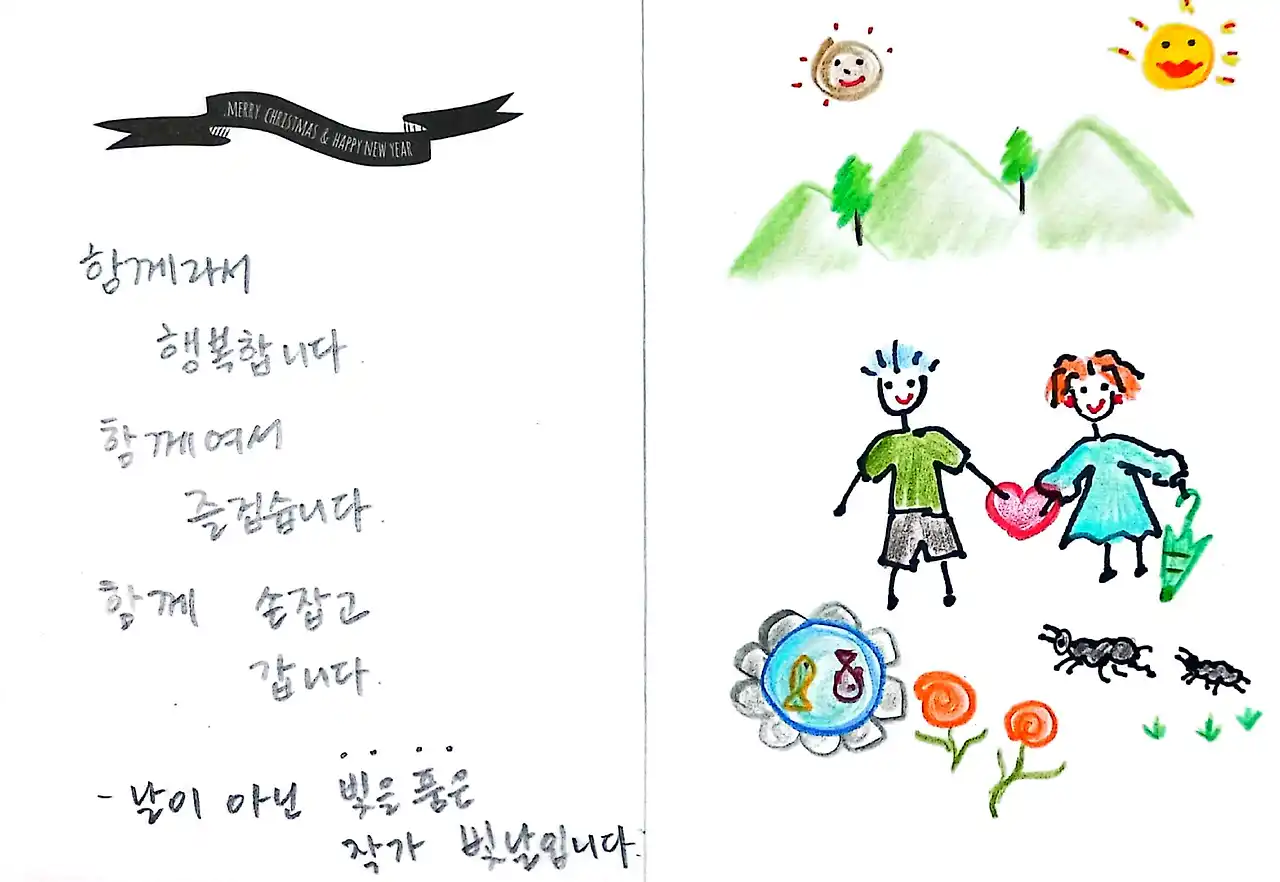 .MERRY CHRISTMAS & HAPPY NEW YEAR
함께라서
행복합니다.
함께여서
즐겁습니다.
함께 손잡고
갑니다.
- 날이 아닌 빛을 품은
작가 빛날입니다.